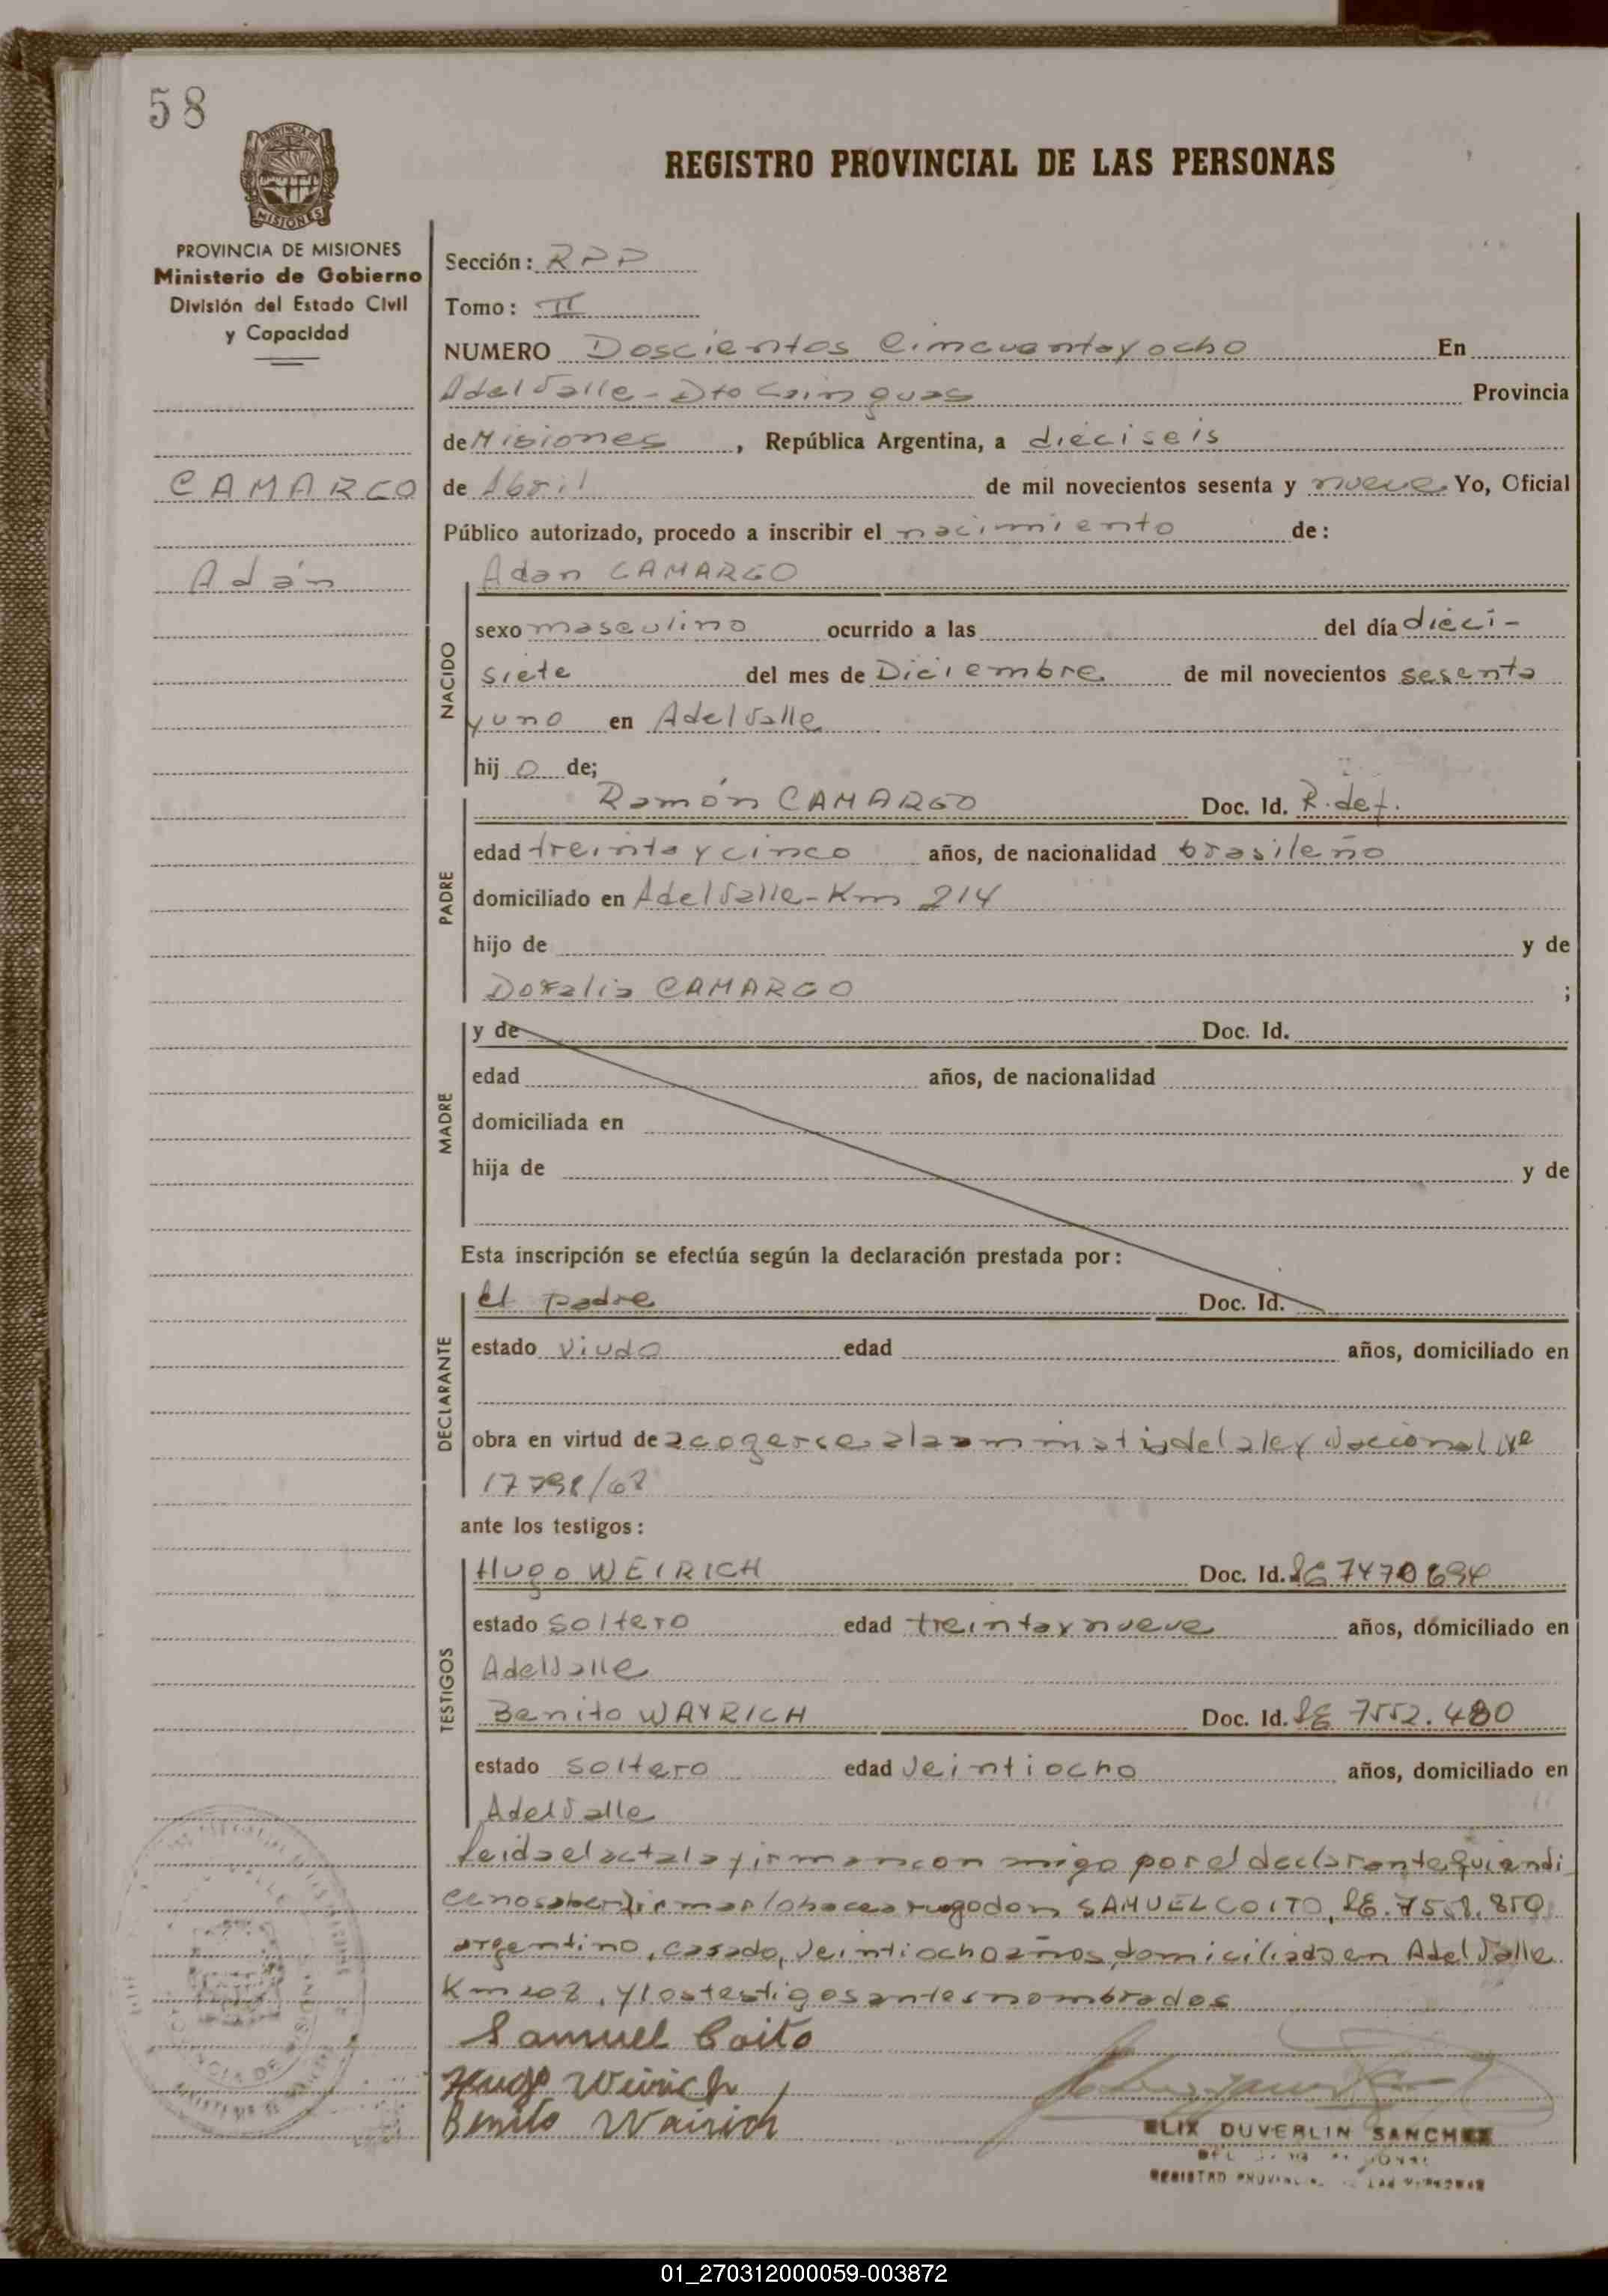 58
PROVINCIA DE MISIONES
Ministerio de Gobierno
División del Estado Civil
y Capacidad
CAMARGO
Adán
REGISTRO PROVINCIAL DE LAS PERSONAS
Sección: RPP
Tomo: II
NUMERO Doscientos Cincuenta y ocho En
Adel Valle - Dto Cainguas Provincia
de Misiones, República Argentina, a dieciseis
de Abril de mil novecientos sesenta y nueve Yo, Oficial
Público autorizado, procedo a inscribir el nacimiento de:
NACIDO
Adan CAMARGO
sexo masculino ocurrido a las del día dieci-
siete del mes de Diciembre de mil novecientos sesenta
y uno en Adel Valle
hij o de;
PADRE
Ramón CAMARGO Doc. Id. R. def.
edad treinta y cinco años, de nacionalidad brasileño
domiciliado en Adel Valle - Km 214
hijo de y de
CAMARGO ;
MADRE
y de Doc. Id.
edad años, de nacionalidad
domiciliada en
hija de y de
Esta inscripción se efectúa según la declaración prestada por:
DECLARANTE
el padre Doc. Id.
estado viudo edad años, domiciliado en
obra en virtud de acogerse a la amnistia de la ley Nacional Nº
17798/68
ante los testigos:
TESTIGOS
Hugo WEIRICH Doc. Id. LE 7470694
estado soltero edad treinta y nueve años, domiciliado en
Adel Valle
Benito WAYRICH Doc. Id. LE 7552.480
estado soltero edad Veintiocho años, domiciliado en
Adel Valle
Leida el acta la firman conmigo por el declarante quien di
ce no saber firmar lo hace a ruego don SAMUEL COITO, LE. 7558.850
argentino, casado, Veintiocho años, domiciliado en Adel Valle
Km 208, y los testigos antes nombrados
Samuel Coito
Hugo Weirich
Benito Wairich
ELIX DUVERLIN SANCHEZ
REGISTRO PROVINCIAL DE LAS PERSONAS
01_270312000059-003872